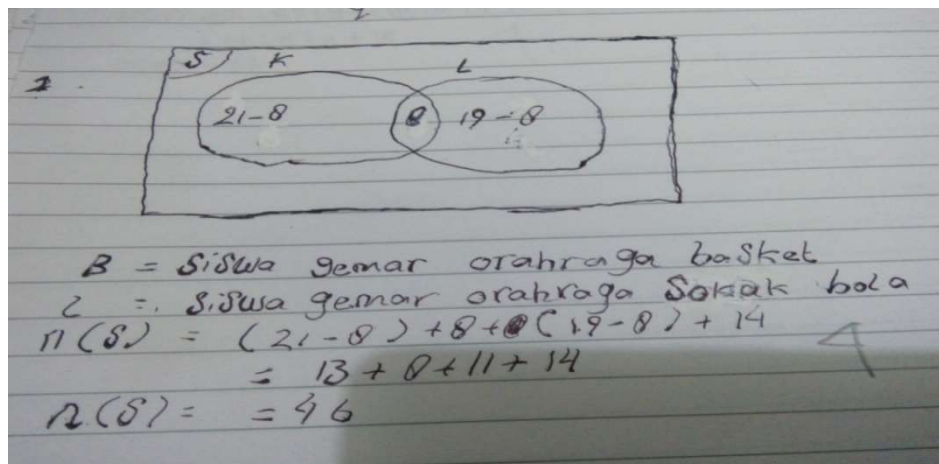 S K L
1.
21-8 8 19-8
B = Siswa gemar orahraga basket
L = Siswa gemar orahraga Sokak bola
n(S) = (21-8)+8+(19-8)+14
= 13+8+11+14
n(S) = = 46
4